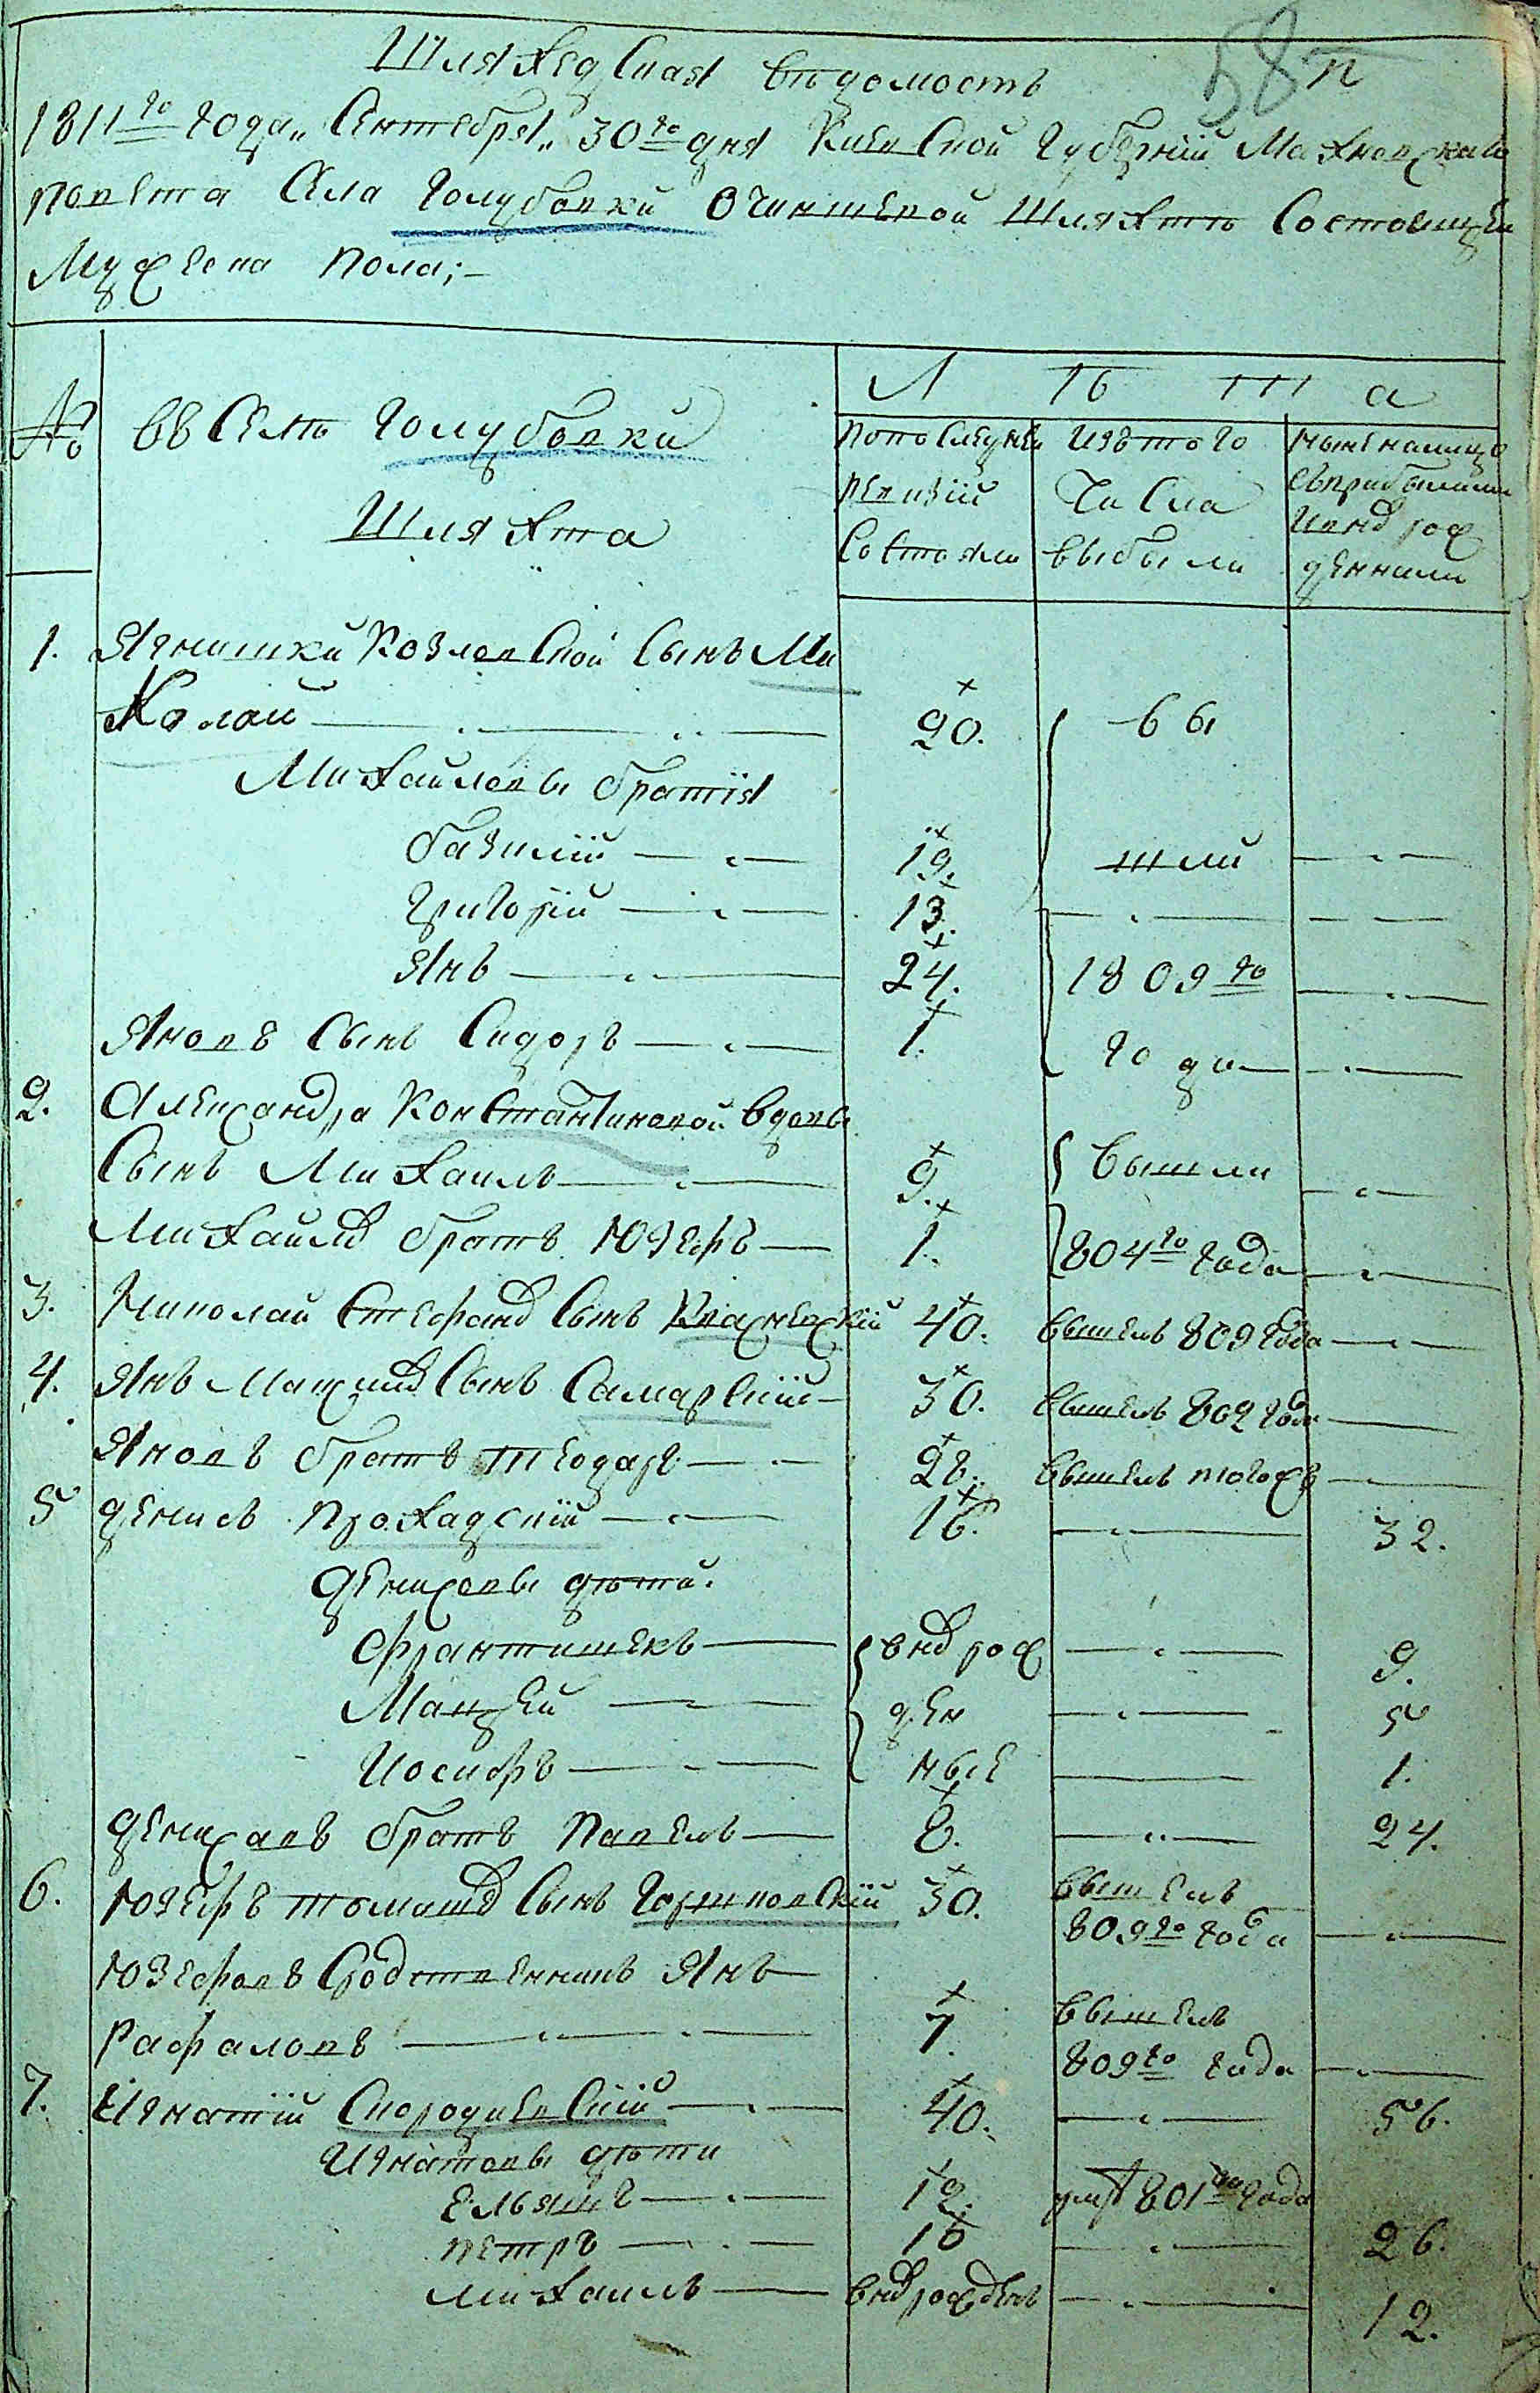 58 п
Шляхедская вѣдомость
1811го года„ Сентября„ 30го дня Киевской Губернии Махновскаго
повета Села Голубовки О чиншевой Шляхтѣ Состоящей
Мужеска пола;-
№ въ Селѣ Голубовки Шляхта
Л ѣ т а
по последней ревизіи Состояли
изъ того Числа выбыли
ныне налицо съприбылыми
вновь рож
денными
1. Ягнишки Козловской Сынъ Ми
Колай 20. вы
Михайловы братія
базилій 19. шли
Григорій 13.
Янъ 24. 1809го
Яновъ Сынъ Сидоръ 1. года
2. Александра Константиновой вдовы
Сынъ Михаилъ 9. вышли
Михайлов братъ Юзефъ 1. 804го года
3. Николай Стефанов Сынъ 40. вышелъ 809 года
4. Янъ Сынъ Самарскій 30. вышелъ 802 года
Яновъ братъ Теодоръ 28. вышелъ тогожъ
5 Денисъ Прохадскій 18. 32.
Денисовы дѣти.
Франтишекъ вновь рож 9.
Мацей ден 5
Иосифъ ные 1.
Денисовъ братъ Павелъ 8. 24.
6. Юзефъ Томашов Сынъ 30. вышелъ
809го года
Юзефовъ Сродственникъ Янъ
Рафаловъ 7. вышелъ
809го года
7. Игнатій Скородиевскій 40. 56.
Игнатовы дѣти
12. умре 801го года
Петръ 16 26.
Михаилъ вновь рожденъ 12.